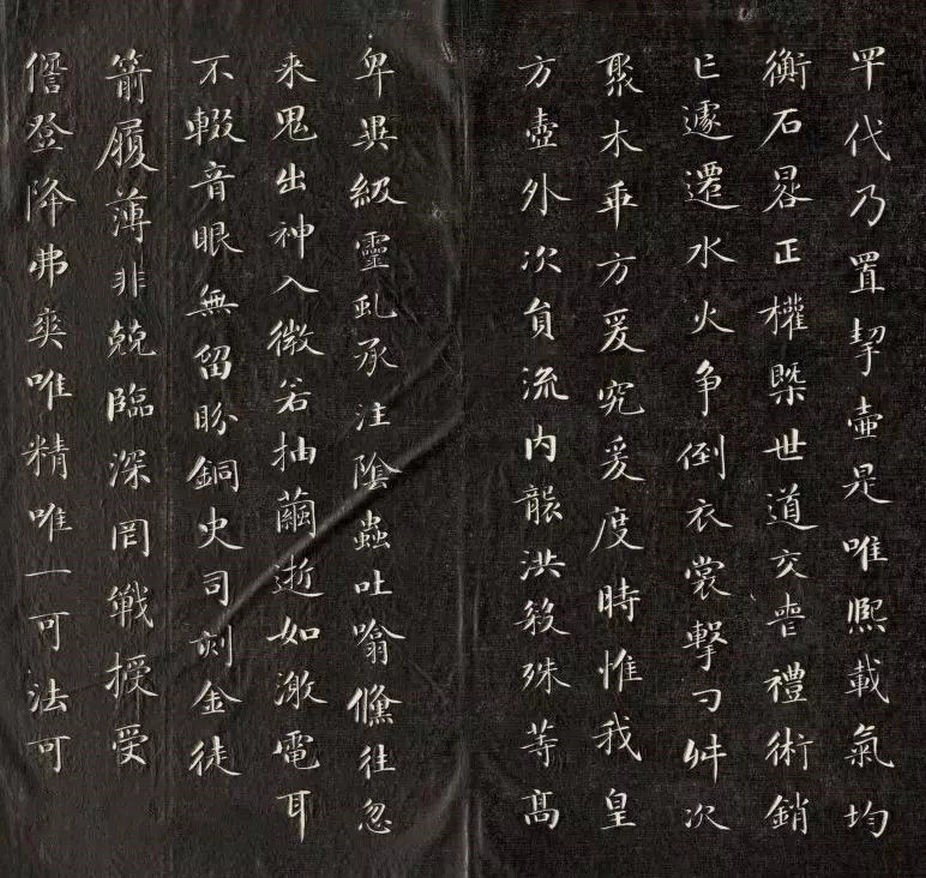 罕代乃置挈壷是唯熈載氣均
衡石晷正權槩世道交丧禮術銷
亡遽遷水火争倒衣裳擊刁舛次
聚木乖方爰究爰度時惟我皇
方壺外次負流内襲洪殺殊等髙
卑異級靈虬承注陰蟲吐噏儵往忽
来鬼出神入微若抽繭逝如激電耳
不輟音眼無留盼銅史司刻金徒
箭履薄非兢臨深罔戰授受
僭登降弗爽唯精唯一可法可